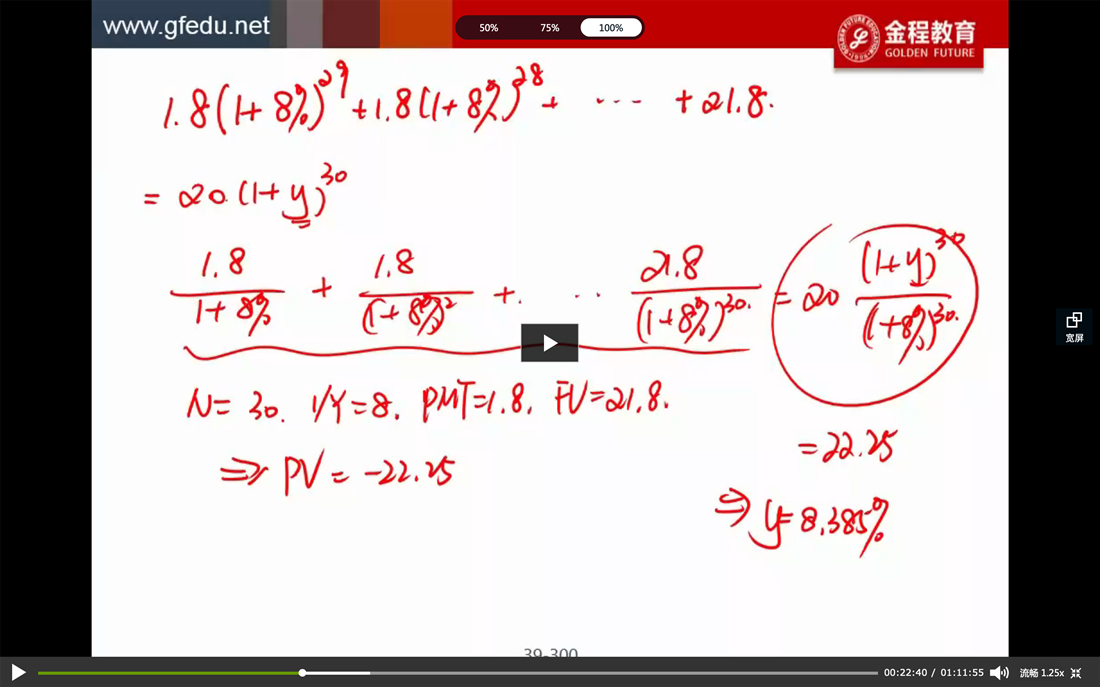 www.gfedu.net
50% 75% 100%
金程教育
GOLDEN FUTURE
1.8(1+8%)^29+1.8(1+8%)^28+ ··· +21.8.
= 20.(1+y)^30
1.8/(1+8%) + 1.8/(1+8%)^2 + ... 21.8/(1+8%)^30. = 20 (1+y)^30/(1+8%)^30.
N= 30. I/Y=8. PMT=1.8. FV=21.8.
=22.25
⇒ PV= -22.25
⇒ y=8.385%
宽屏
39-300
00:22:40 / 01:11:55 流畅 1.25x